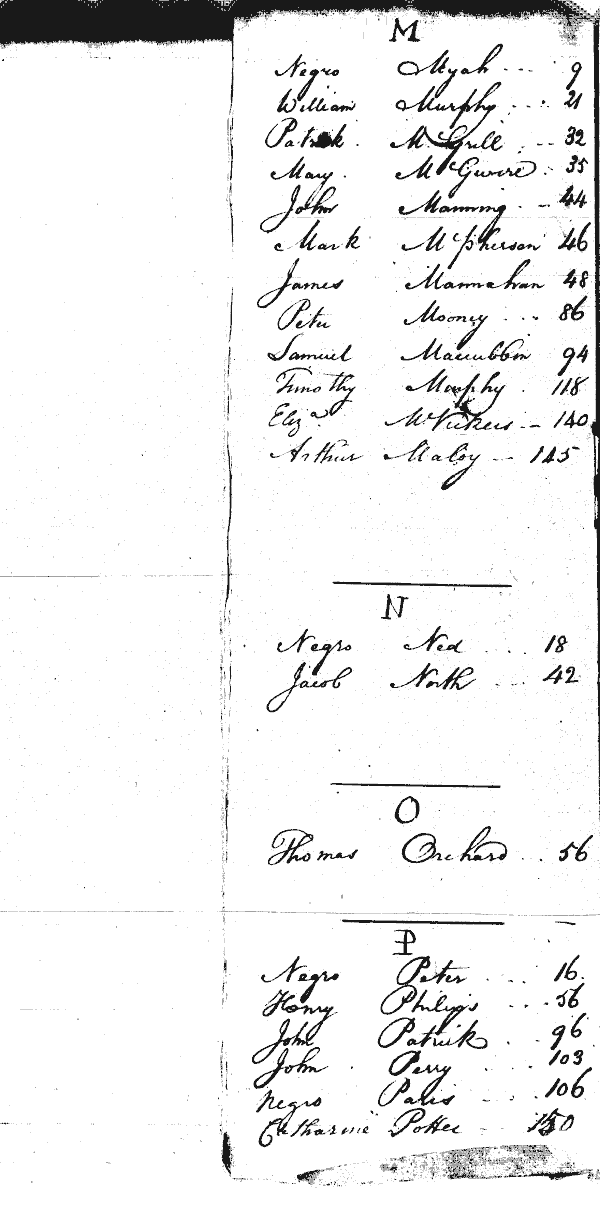 M
Negro Myah --- 9
William Murphy ... 21
Patrick. McGrill --- 32
Mary. McGuire. 35
John Manning --- 44
Mark McPherson 46
James Mannahan 48
Peter Mooney ... 86
Samuel Maccubbin 94
Timothy Murphy. 118
Eliza. McVickers -- 140
Arthur Maloy --- 145
N
Negro Ned .... 18
Jacob North .... 42
O
Thomas Orchard .. 56
P
Negro Peter .... 16.
Henry Philips ... 56
John Patrick .. 96
John. Perry .... 103
Negro Paris .... 106
Catharine Potter ---